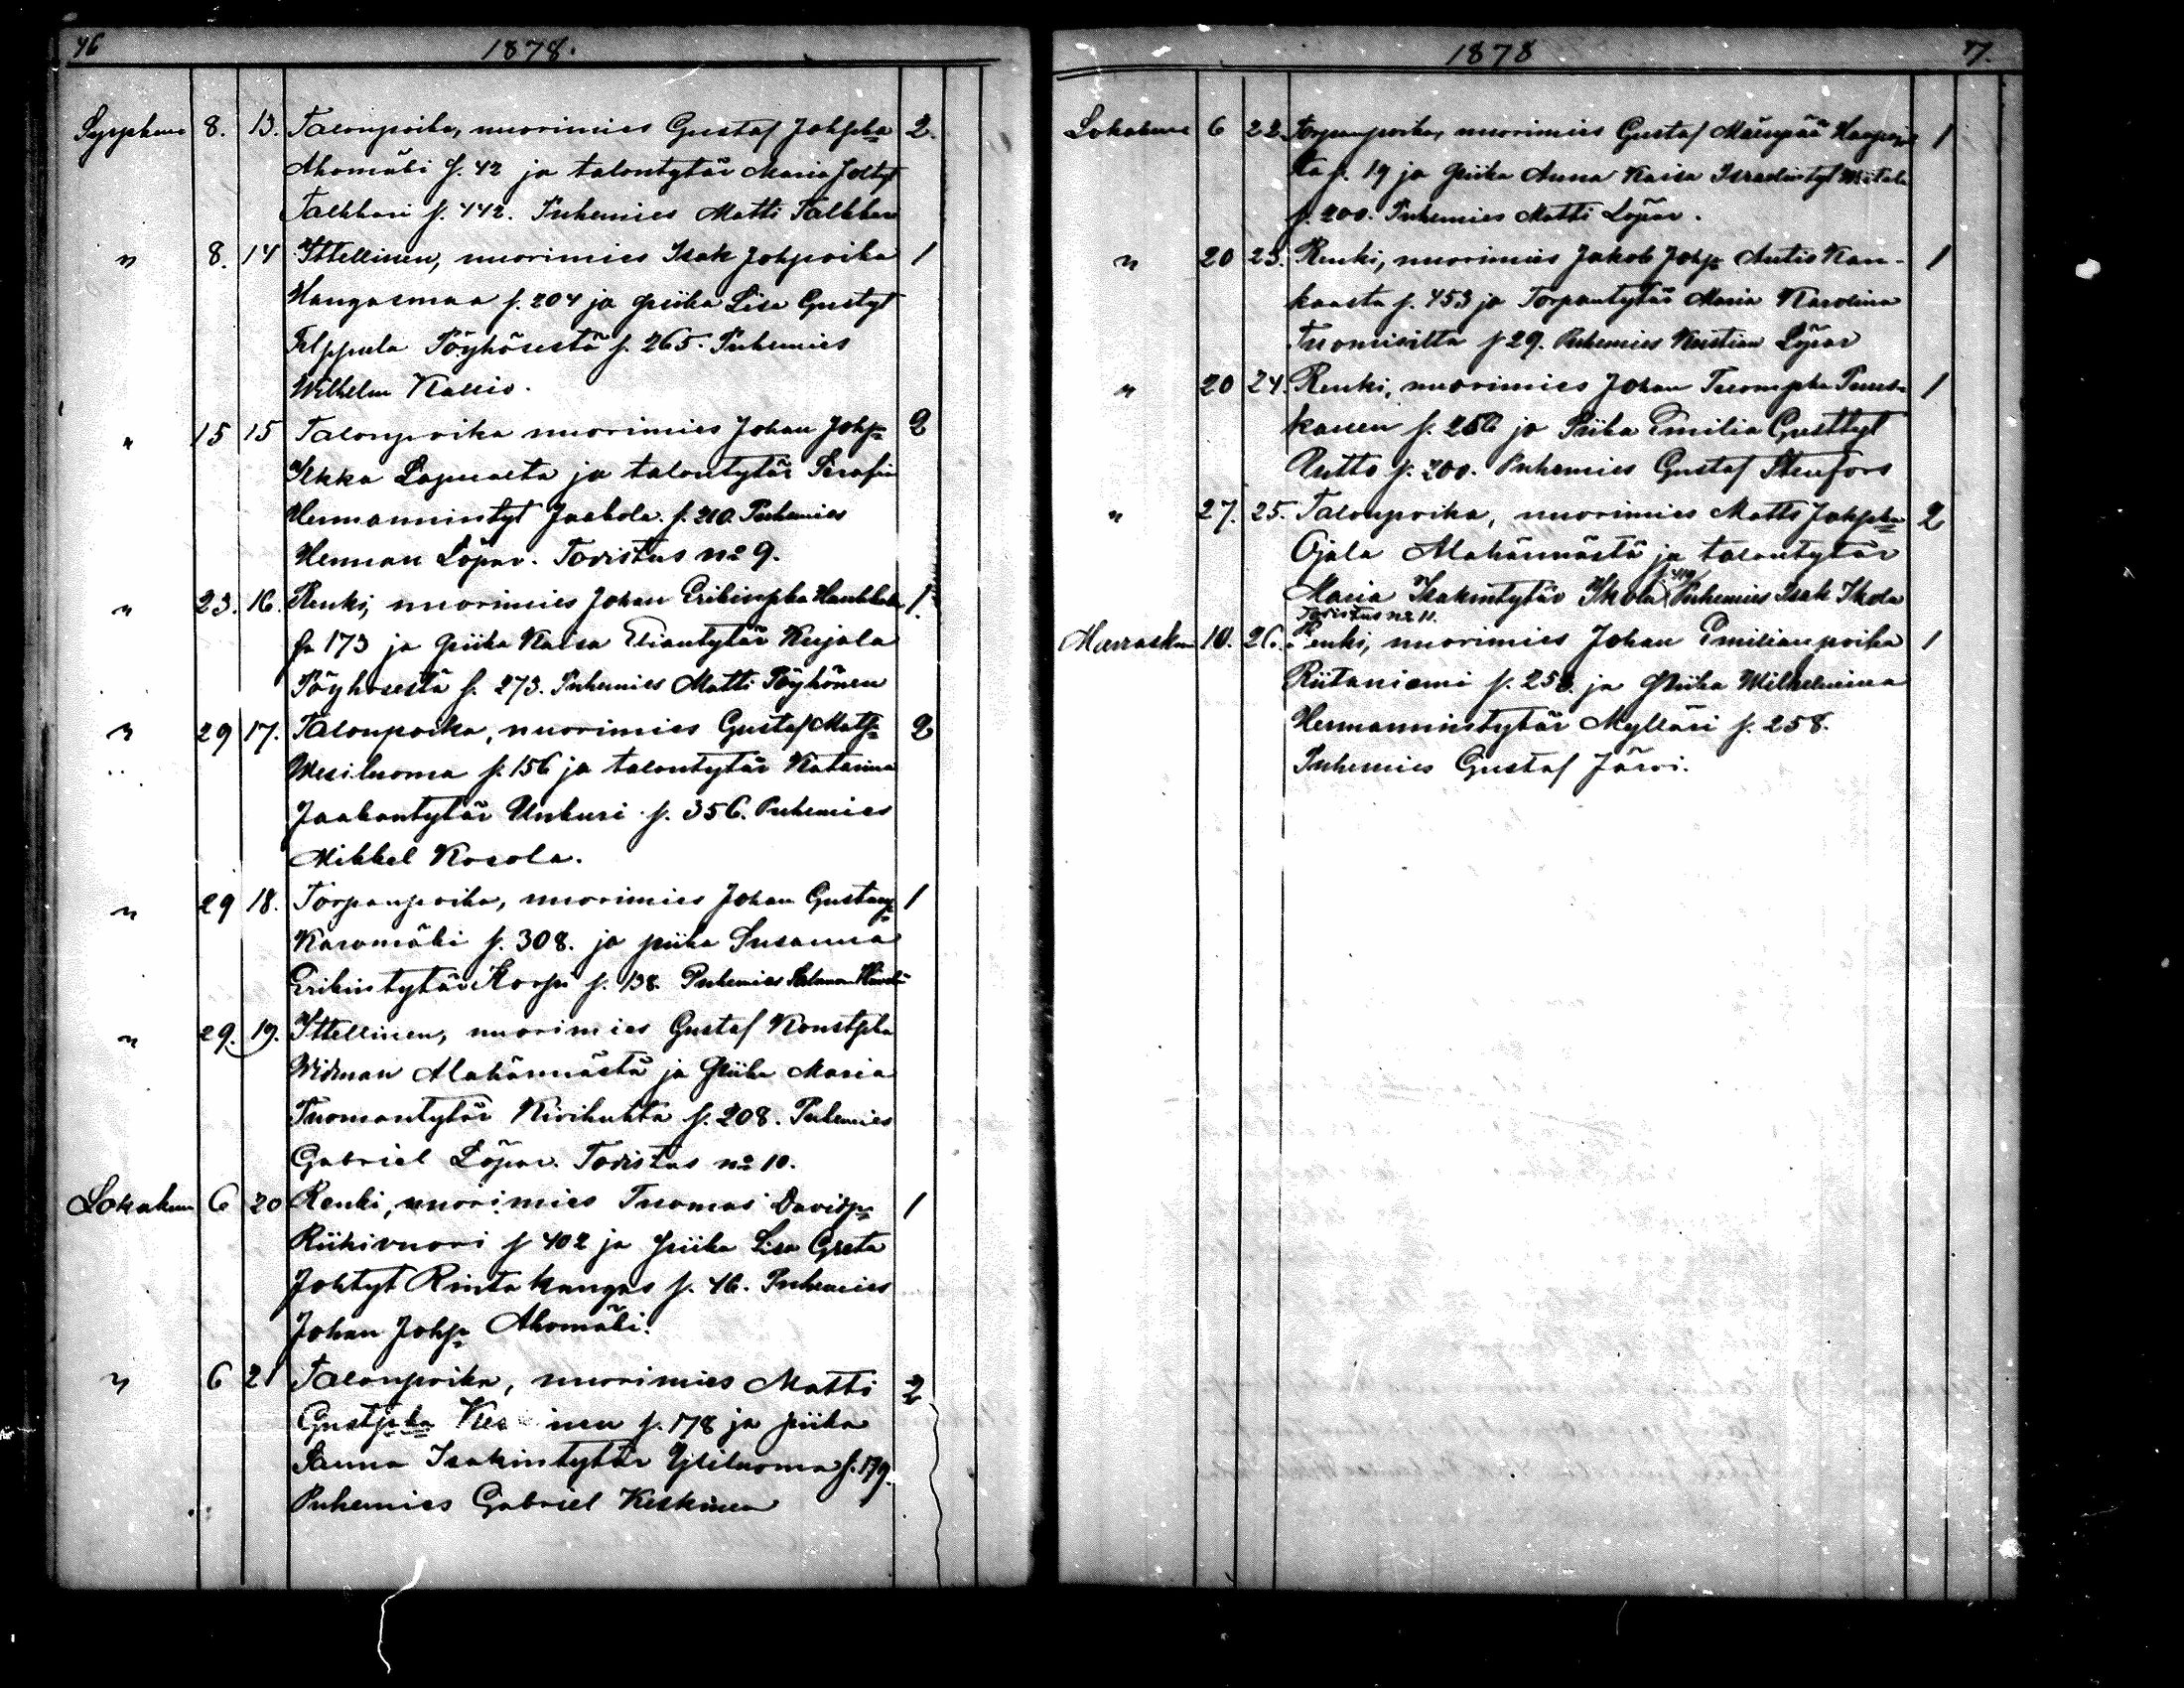 46 1878.
Syyskuu 8. 13. Talonpoika, nuorimies Gustaf Johpka 2.
Ahomäki s. 42 ja talontytär Maria Johtyt
Talkkari s. 442. Puhemies Matti Talkkari
" 8. 14 Ittellinen, nuorimies Isak Johpoika 1
Kangasmaa s. 204 ja piika Lisa Gustyt
Filppula Töyhösestä s. 265. Puhemies
Wilhelm Kallio.
" 15 15 Talonpoika nuorimies Johan Johp 2
Ikka Lapualta ja talontytär Serafia
Hermannintyt Jaakola s. 210. Puhemies
Herman Löpar. Todistus no 9.
" 23. 16. Renki, nuorimies Johan Erikinpka 1.
s. 173 ja piika Kaisa Eliantytär Kujala
Töyhösestä s. 273. Puhemies Matti Töyhönen
" 29 17. Talonpoika, nuorimies Gustaf Matp 2
Wesiluoma s. 156 ja talontytär Katarina
Jaakontytär Unkuri s. 356. Puhemies
Mikkel Kosola.
" 29 18. Torpanpoika, nuorimies Johan Gustavp 1
Karomäki s. 308. ja piika Susanna
Erikintytär Korpi s. 138. Puhemies Salomon
" 29. 19. Ittellinen, nuorimies Gustaf Konstpka
Widman Alahärmästä ja Piika Maria
Tuomantytär Kivihuhta s. 208. Puhemies
Gabriel Löpar. Todistus no 10.
Lokakuu 6 20 Renki, nuorimies Tuomas Davidp 1
Riihivuori s 402 ja piika Lisa Greta
Johtyt Rintakangas s. 46. Puhemies
Johan Johp Ahomäki.
" 6 21 Talonpoika, nuorimies Matti 2
Gustpka Kes inen s. 178 ja piika
Sanna Isakintytär Yliluoma s. 179.
Puhemies Gabriel Keskinen
1878 47.
Lokakuu 6 22. Torpanpoika, nuorimies Gustaf Mäenpää 1
s. 19 ja Piika Anna Kaisa Israelintyt
s. 200. Puhemies Matti Löpar.
" 20 23. Renki, nuorimies Jakob Johp Antis Kau- 1
haasta s. 453 ja Torpantytär Maria Karolina
Tuomisilta s 29. Puhemies Kustian Löpar
" 20 24. Renki, nuorimies Johan Tuompka Puus- 1
kanen s. 256 ja Piika Emilia Gusttyt
Rutto s. 200. Puhemies Gustaf Stenfors
" 27. 25. Talonpoika, nuorimies Matts Johpka 2
Ojala Alahärmästä ja talontytär
Maria Isakintytär Ikola s. 419 Puhemies Isak Ikola
Todistus no 11.
Marraskuu 10. 26. Renki, nuorimies Johan Emilianpoika 1
Riitaniemi s. 258. ja Piika Wilhelmiina
Hermannintytär Mylläri s. 258.
Puhemies Gustaf Järvi.